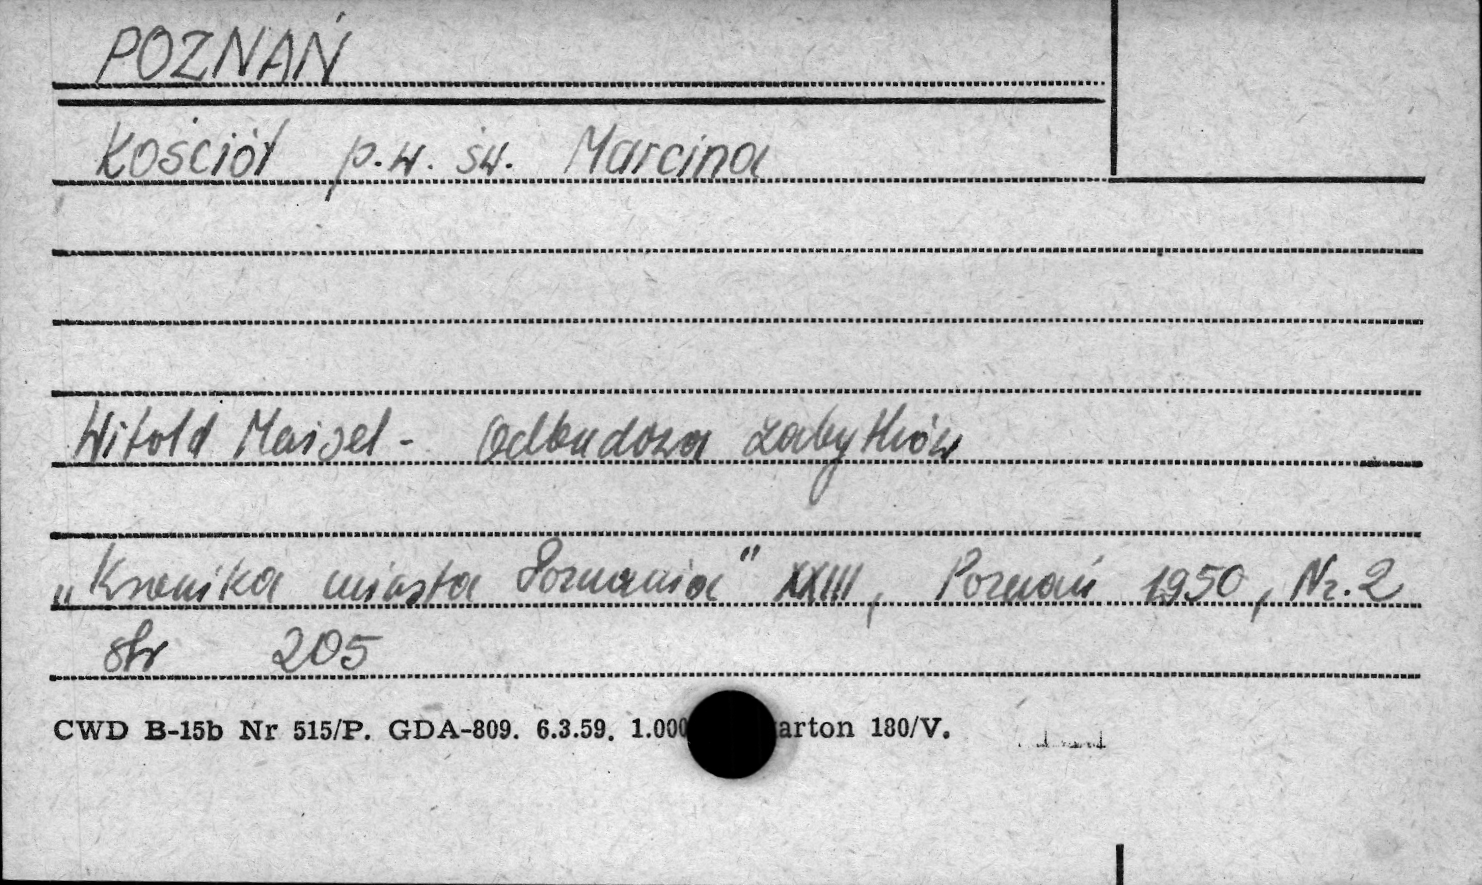 POZNAŃ
Kościół p.w. św. Marcina
Witold Maisel - Odbudowa zabytków
„Kronika miasta Poznania" XXIII, Poznań 1950, Nr. 2
str 205
CWD B-15b Nr 515/P. GDA-809. 6.3.59. 1.000 arton 180/V.